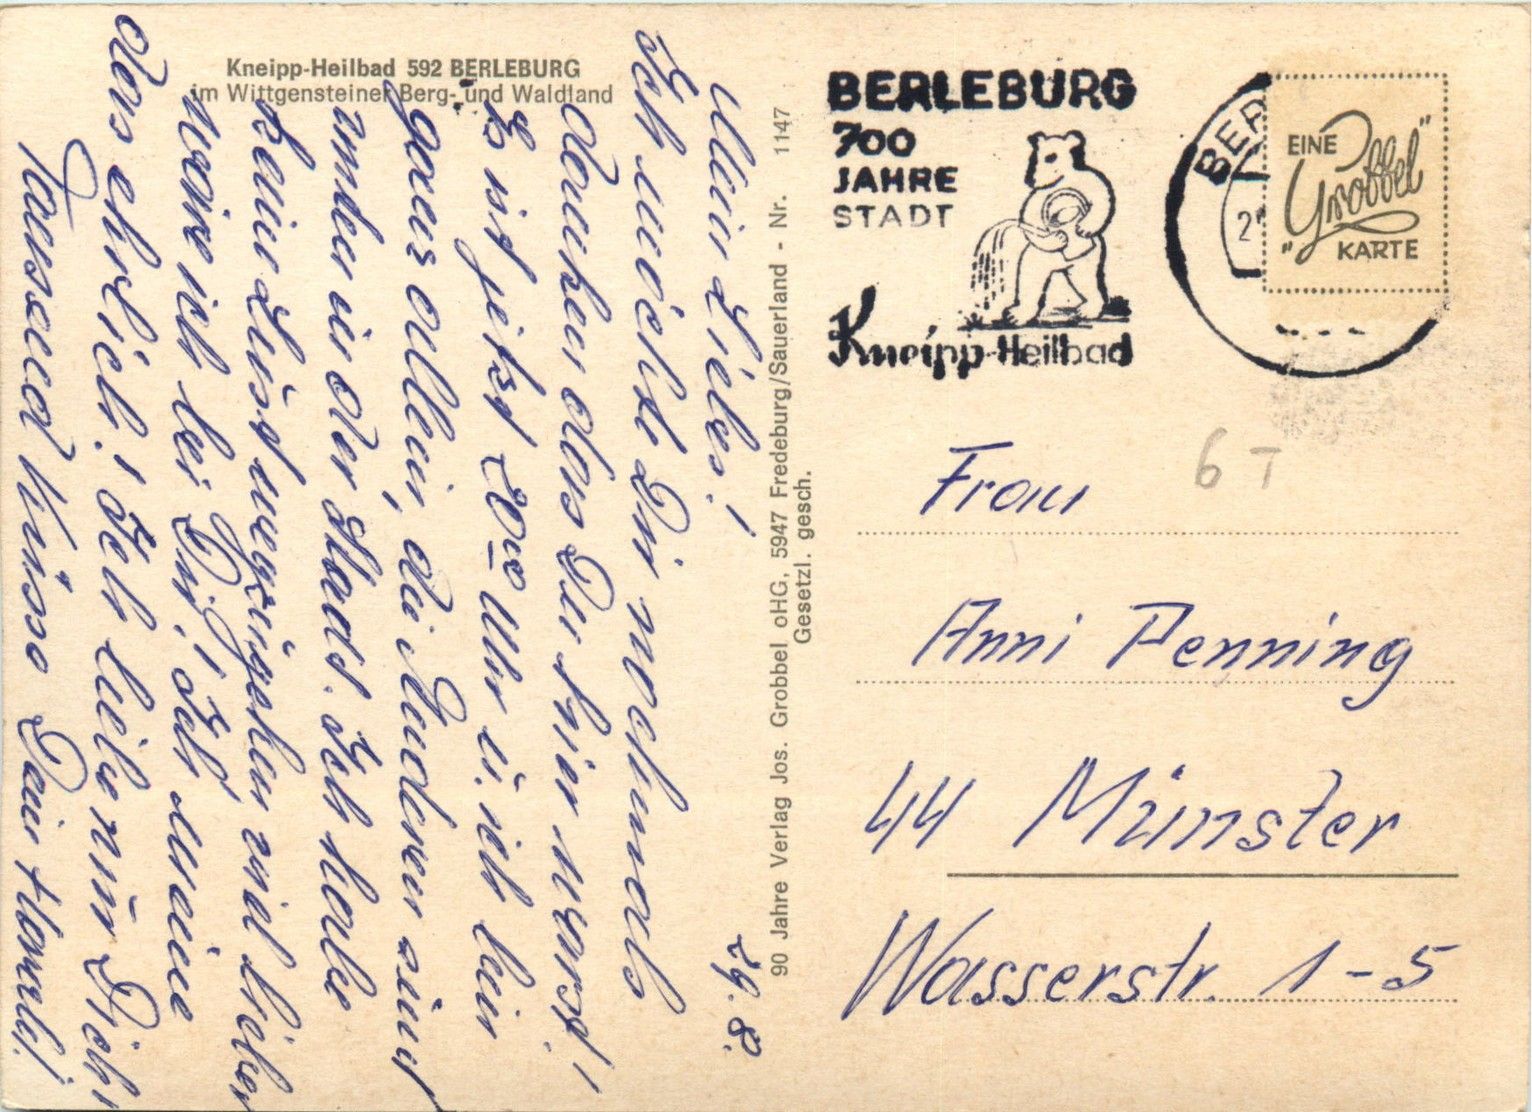 Kneipp-Heilbad 592 BERLEBURG
im Wittgensteiner Berg- und Waldland
29. 8.
Mein Liebes!
Ich möchte Dir nochmals
danken das Du hier warst!
Es ist jetzt 20 00 Uhr u. ich bin
ganz allein, die Anderen sind
unden in der Stadt. Ich habe
kein Lust wegzugehen viel lieber
wäre ich bei Dir! Ich meine
das ehrlich! Ich liebe nur Dich!
Tausend Küsse Dein
90 Jahre Verlag Jos. Grobbel oHG, 5947 Fredeburg/Sauerland - Nr. 1147
Gesetzl. gesch.
BERLEBURG
700
JAHRE
STADT
Kneipp-Heilbad
BER
2
EINE
„Grobbel"
KARTE
6 T
Frau
Anni Penning
44 Münster
Wasserstr. 1-5